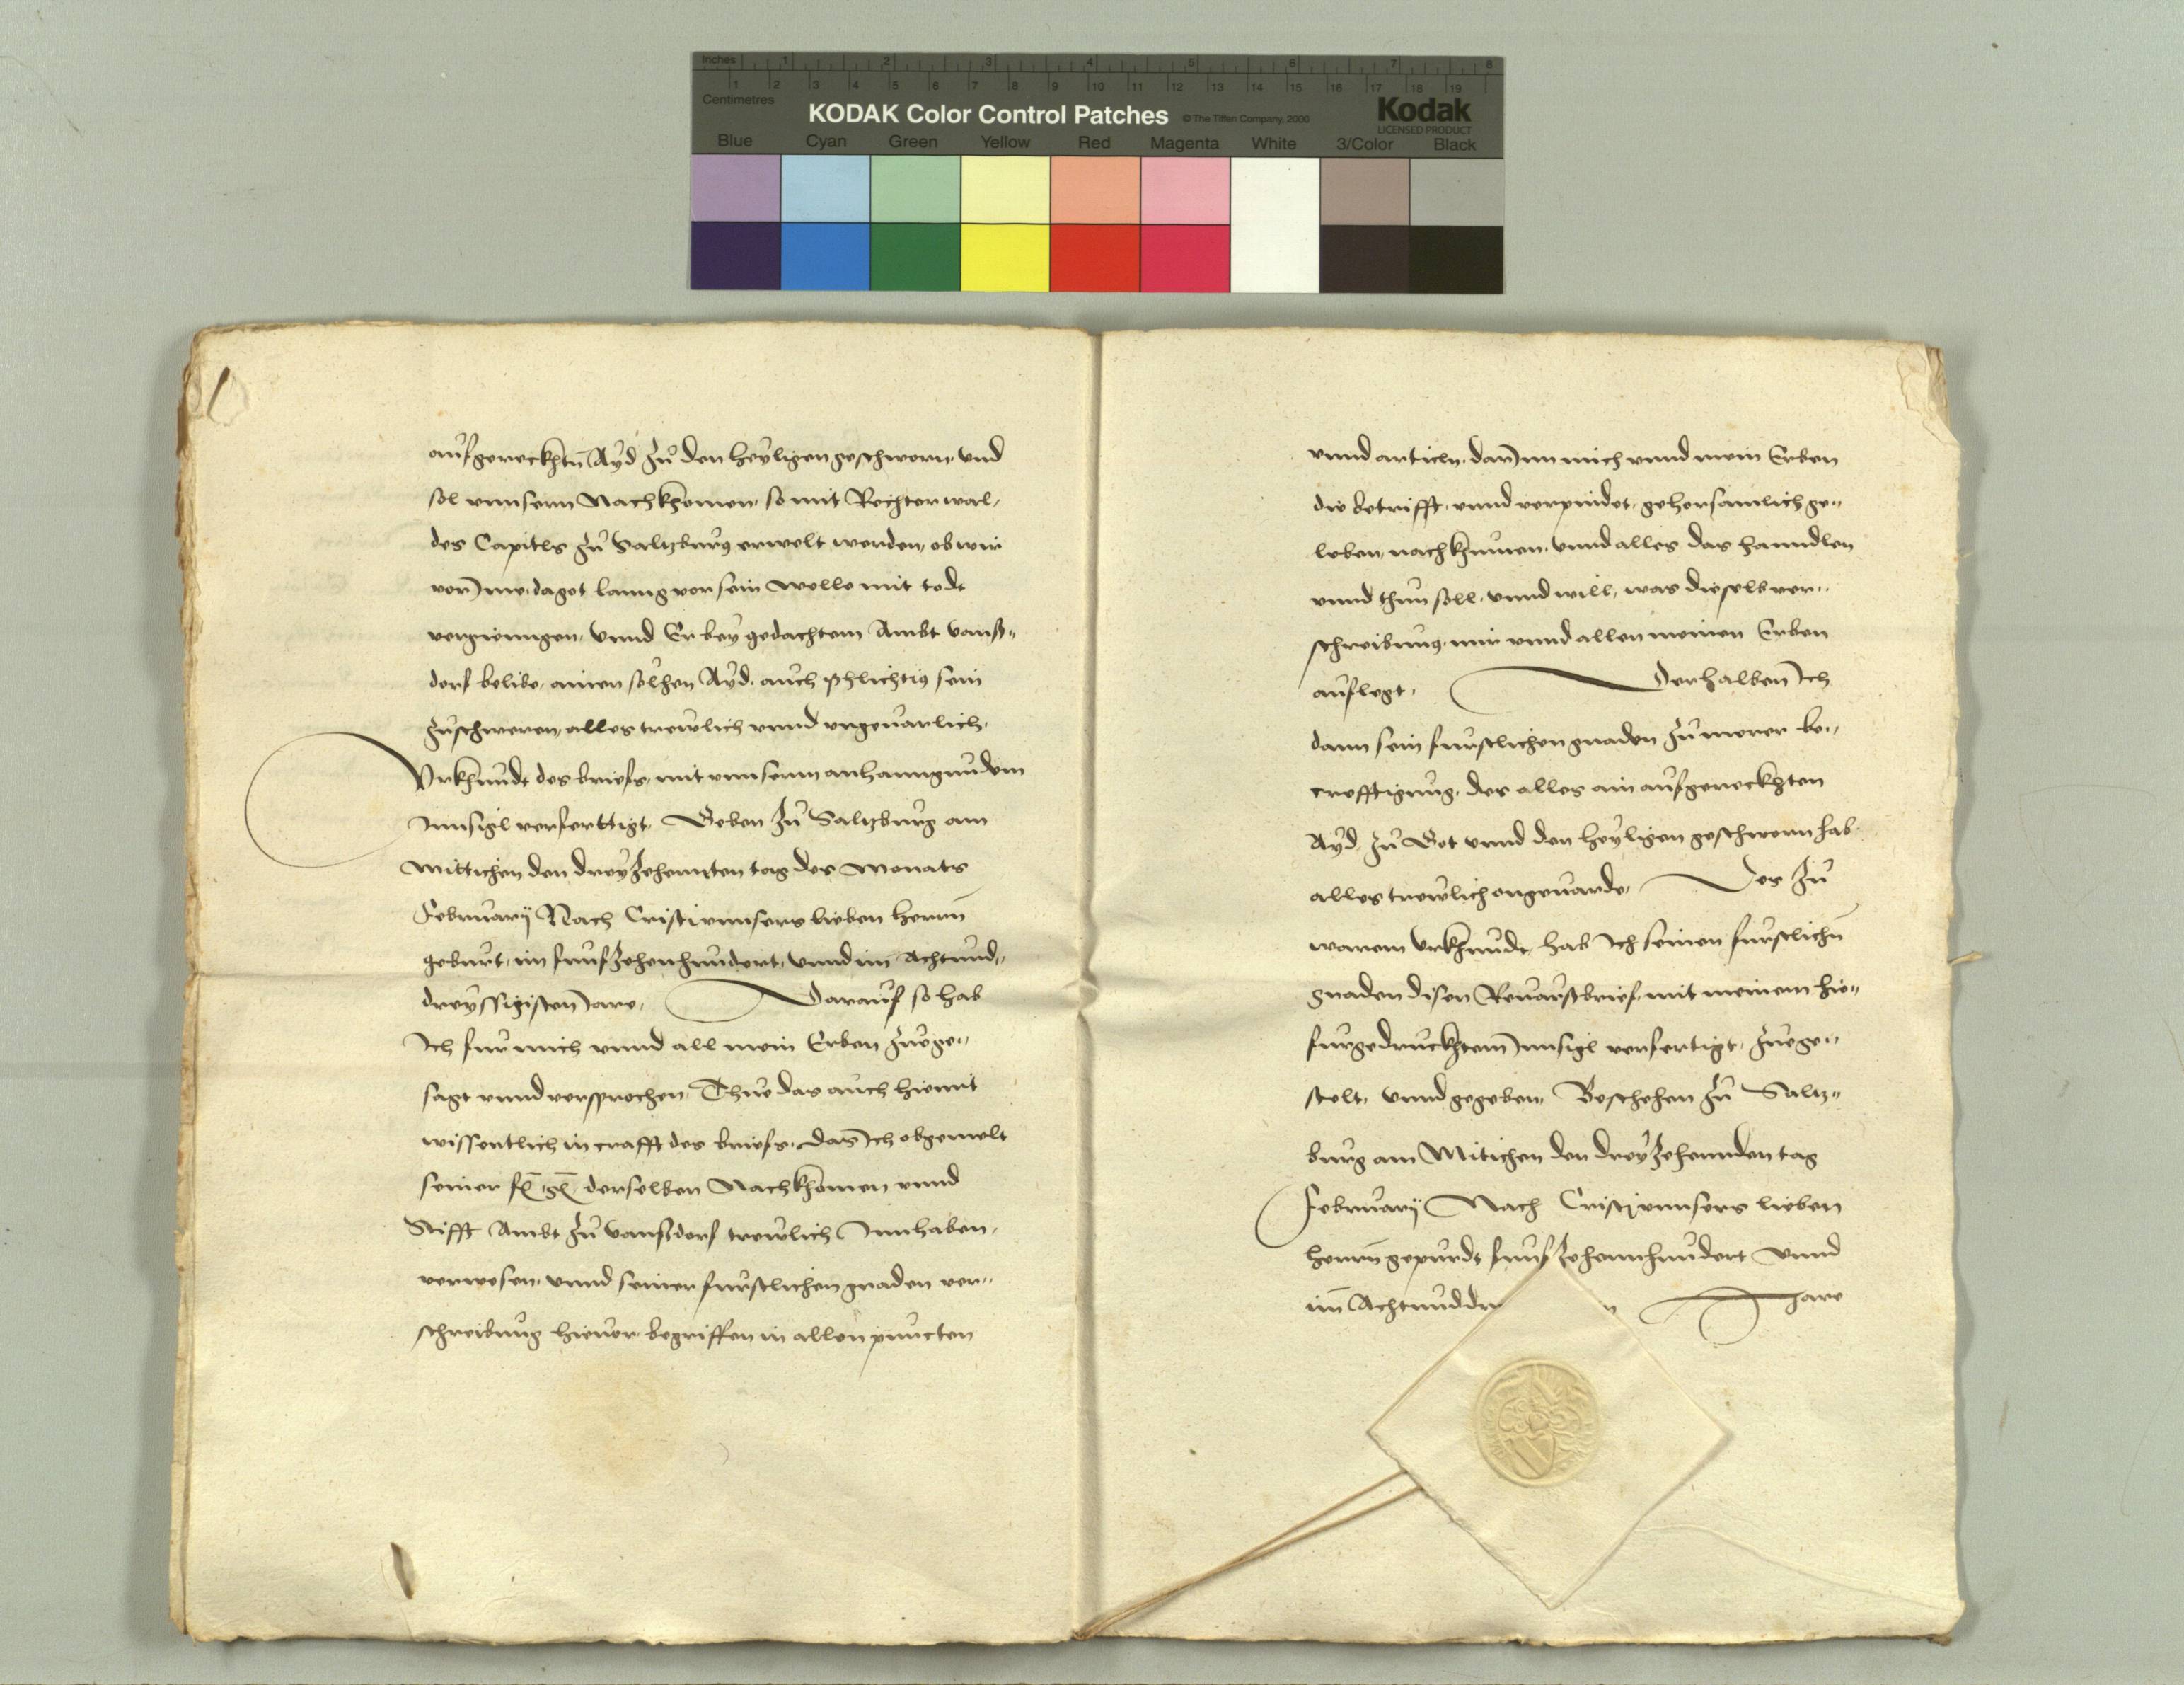 Inches 1 2 3 4 5 6 7 8
1 2 3 4 5 6 7 8 9 10 11 12 13 14 15 16 17 18 19
Centimetres
KODAK Color Control Patches © The Tiffen Company, 2000 Kodak
LICENSED PRODUCT
Blue Cyan Green Yellow Red Magenta White 3/Color Black
aufgereckhtn Ayd zu den heyligen geschworn, vnd
sol vnnsern Nachkhomen, so mit Rechter wal,
des Capitls zu Saltzburg erwelt werden, ob wir
vor lanng vor sein welle mit tode
vergienngen, vnnd Er bey gedachtem Ambt vanst„
dorf belibe, ainen solhen Ayd, auch phlichtig sein
zuschweren, alles trewlich vnnd vngeuarlich,
Vrkhundt des briefs, mit vnnserm anhanngundem
Innsigl verferttigt, Geben zu Saltzburg am
Mittichen den dreyzehennten tag des Monats
Februarÿ Nach Cristi vnnsers lieben herrn
geburt, im funfzehenhundert, vnnd im Achtund„
dreyssigisten Jare, Darauf so hab
Ich fur mich vnnd all mein Erben zuege„
sagt vnnd versprochen, Thue das auch hiemit
wissentlich in crafft des briefs, das Ich obgemelt
seiner fl: gl: derselben Nachkhomen vnnd
Stifft Ambt zu vanstdorf trewlich Innhaben,
verwesen, vnnd seiner furstlichen gnaden ver„
schreibung hieuor begriffen in allen puncten
vnnd articln, darJnn mich vnnd mein Erben
die betrifft, vnnd verpindet, gehorsamlich ge„
leben, nachkhumen, vnnd alles das hanndlen
vnnd thun soll, vnnd will, was dieselb ver„
schreibung, mir vnnd allen meinen Erben
auflegt, Derhalben Ich
dann sein furstlichen gnaden zu merer be„
crefftigung, des alles ain aufgereckhten
Ayd, zu Got vnnd den heyligen geschworn hab
alles trewlich ongeuarde, Des zu
warem Vrkhundt, hab Ich seinen furstlichn
gnaden disen Reuerstbrief, mit meinem hie„
furgedruckhtem Innsigl verfertigt, zuege„
stelt, vnnd gegeben, Beschehen zu Saltz„
burg am Mitichen den dreyzehennden tag
Februarÿ Nach Cristj vnnsers lieben
herrn gepurdt funfzehennhundert vnnd
im Achtunddr n Jare